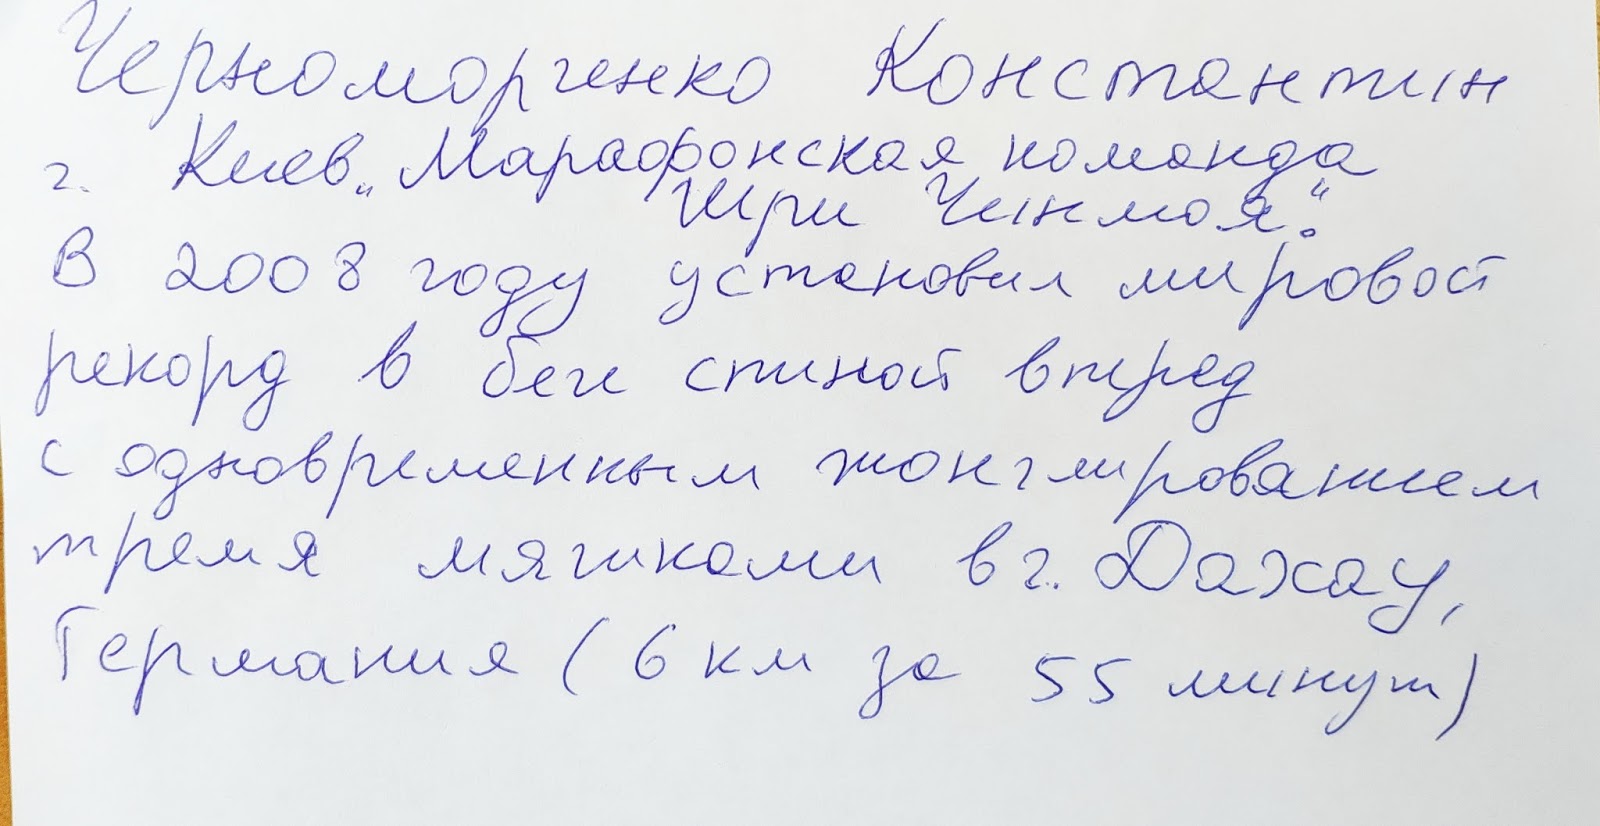 Черноморченко Константин
г. Киев „Марафонская команда
Шри Чинмоя“.
В 2008 году установил мировой
рекорд в беге спиной вперед
с одновременным жонглированием
тремя мячиками в г. Дахау,
Германия (6 км за 55 минут)